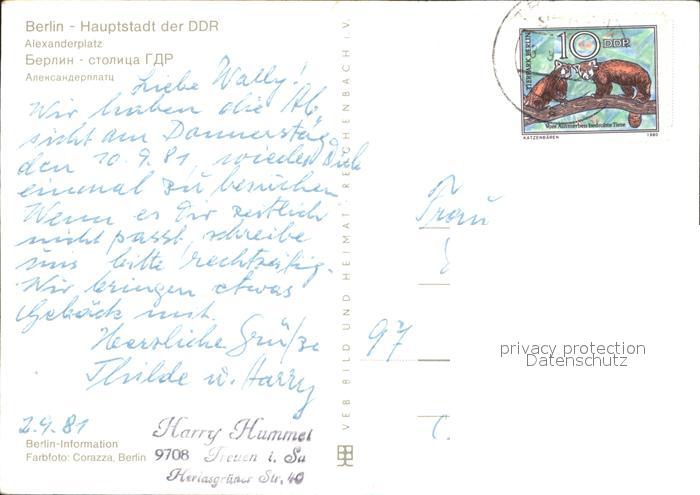 Berlin - Hauptstadt der DDR
Alexanderplatz
Берлин - столица ГДР
Александерплатц
Liebe Wally!
Wir haben die Ab-
sicht am Donnerstag
den 10.9.81, wieder Dich
einmal zu besuchen.
Wenn es Dir zeitlich
nicht passt, schreibe
uns bitte rechtzeitig.
Wir bringen etwas
Gebäck mit.
Herzliche Grüße
Thilde u. Harry
2.9.81
Berlin-Information
Farbfoto: Corazza, Berlin
Harry Hummel
9708 Treuen i. Sa
Herlasgrüner Str. 40
VEB BILD UND HEIMAT REICHENBACH i.V.
TIERPARK BERLIN
10 DDR
Vom Aussterben bedrohte Tiere
KATZENBÄREN 1980
Frau
97
privacy protection
Datenschutz